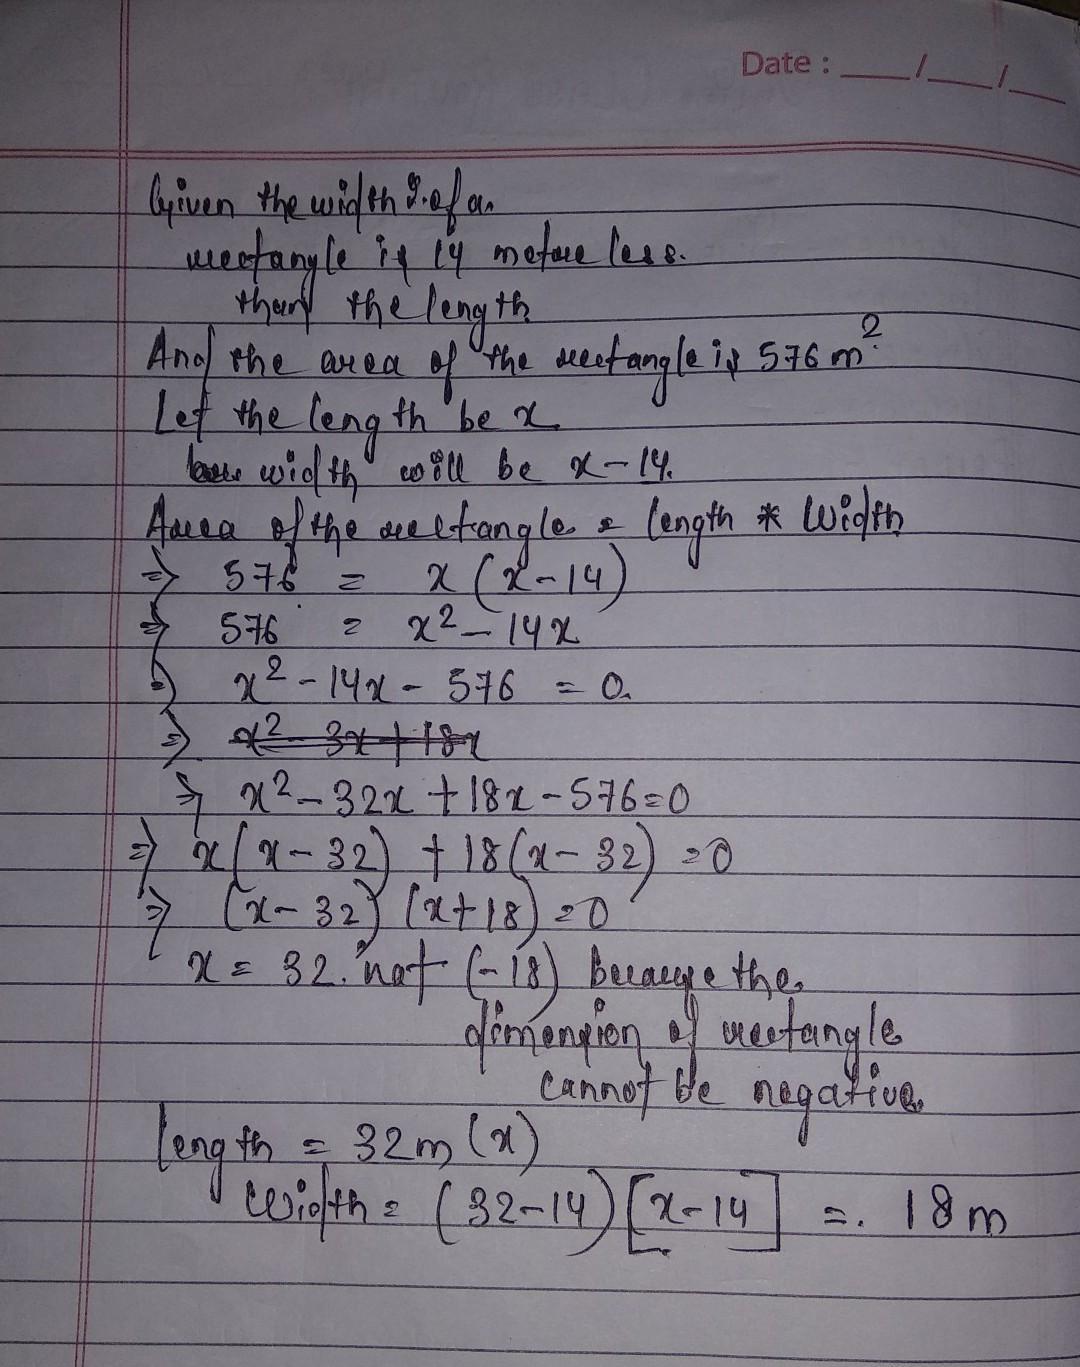 Date : ___/___/___
Given the width of a
rectangle is 14 metre less.
than the length
And the area of the rectangle is 576 m².
Let the length be x
width will be x - 14.
Area of the rectangle = length * Width
=> 576 = x (x - 14)
=> 576 = x² - 14x
=> x² - 14x - 576 = 0.
=> x² - 3x + 18x
=> x² - 32x + 18x - 576 = 0
=> x(x - 32) + 18(x - 32) = 0
=> (x - 32) (x + 18) = 0
x = 32. not (-18) Because the
dimension of rectangle
cannot be negative.
length = 32m (x)
Width = (32 - 14) [x - 14] = 18 m